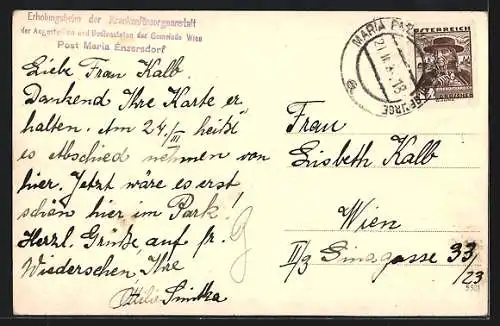 Erholungsheim der Krankenfürsorgeanstalt
der Angestellten und Bediensteten der Gemeinde Wien
Post Maria Enzersdorf
Liebe Frau Kalb.
Dankend Ihre Karte er
halten. Am 24./III heißt
es Abschied nehmen von
hier. Jetzt wäre es erst
schön hier im Park!
Herzl. Grüße, auf fr.
Wiedersehen, Ihre
Ottilie
MARIA
GEBIRGE
ÖSTERREICH
GROSCHEN
Frau
Lisbeth Kalb
Wien
II/3 Sinagasse 33
/23